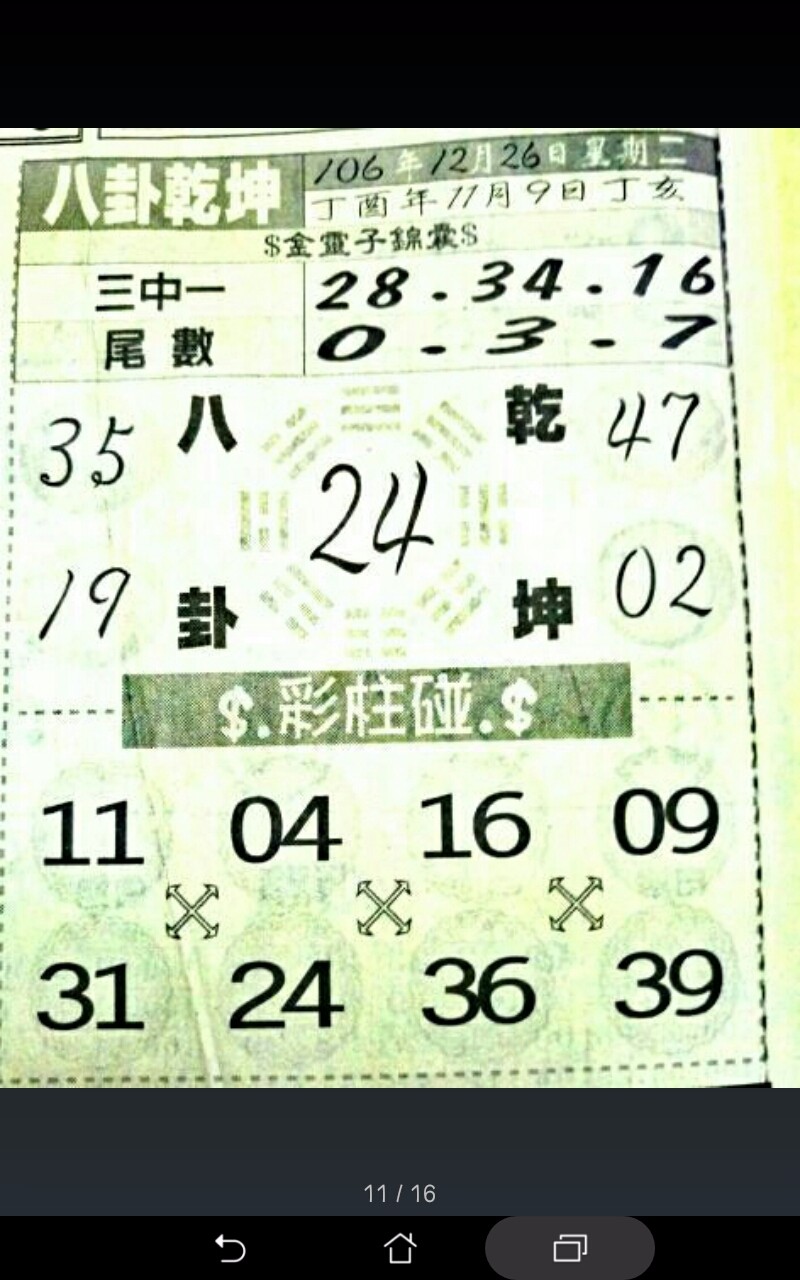 八卦乾坤
106年12月26日星期二
丁酉年11月9日丁亥
$金靈子錦囊$
三中一 28.34.16
尾數 0.3.7
35 八 乾 47
24
19 卦 坤 02
$.彩柱碰.$
11 04 16 09
31 24 36 39
11 / 16